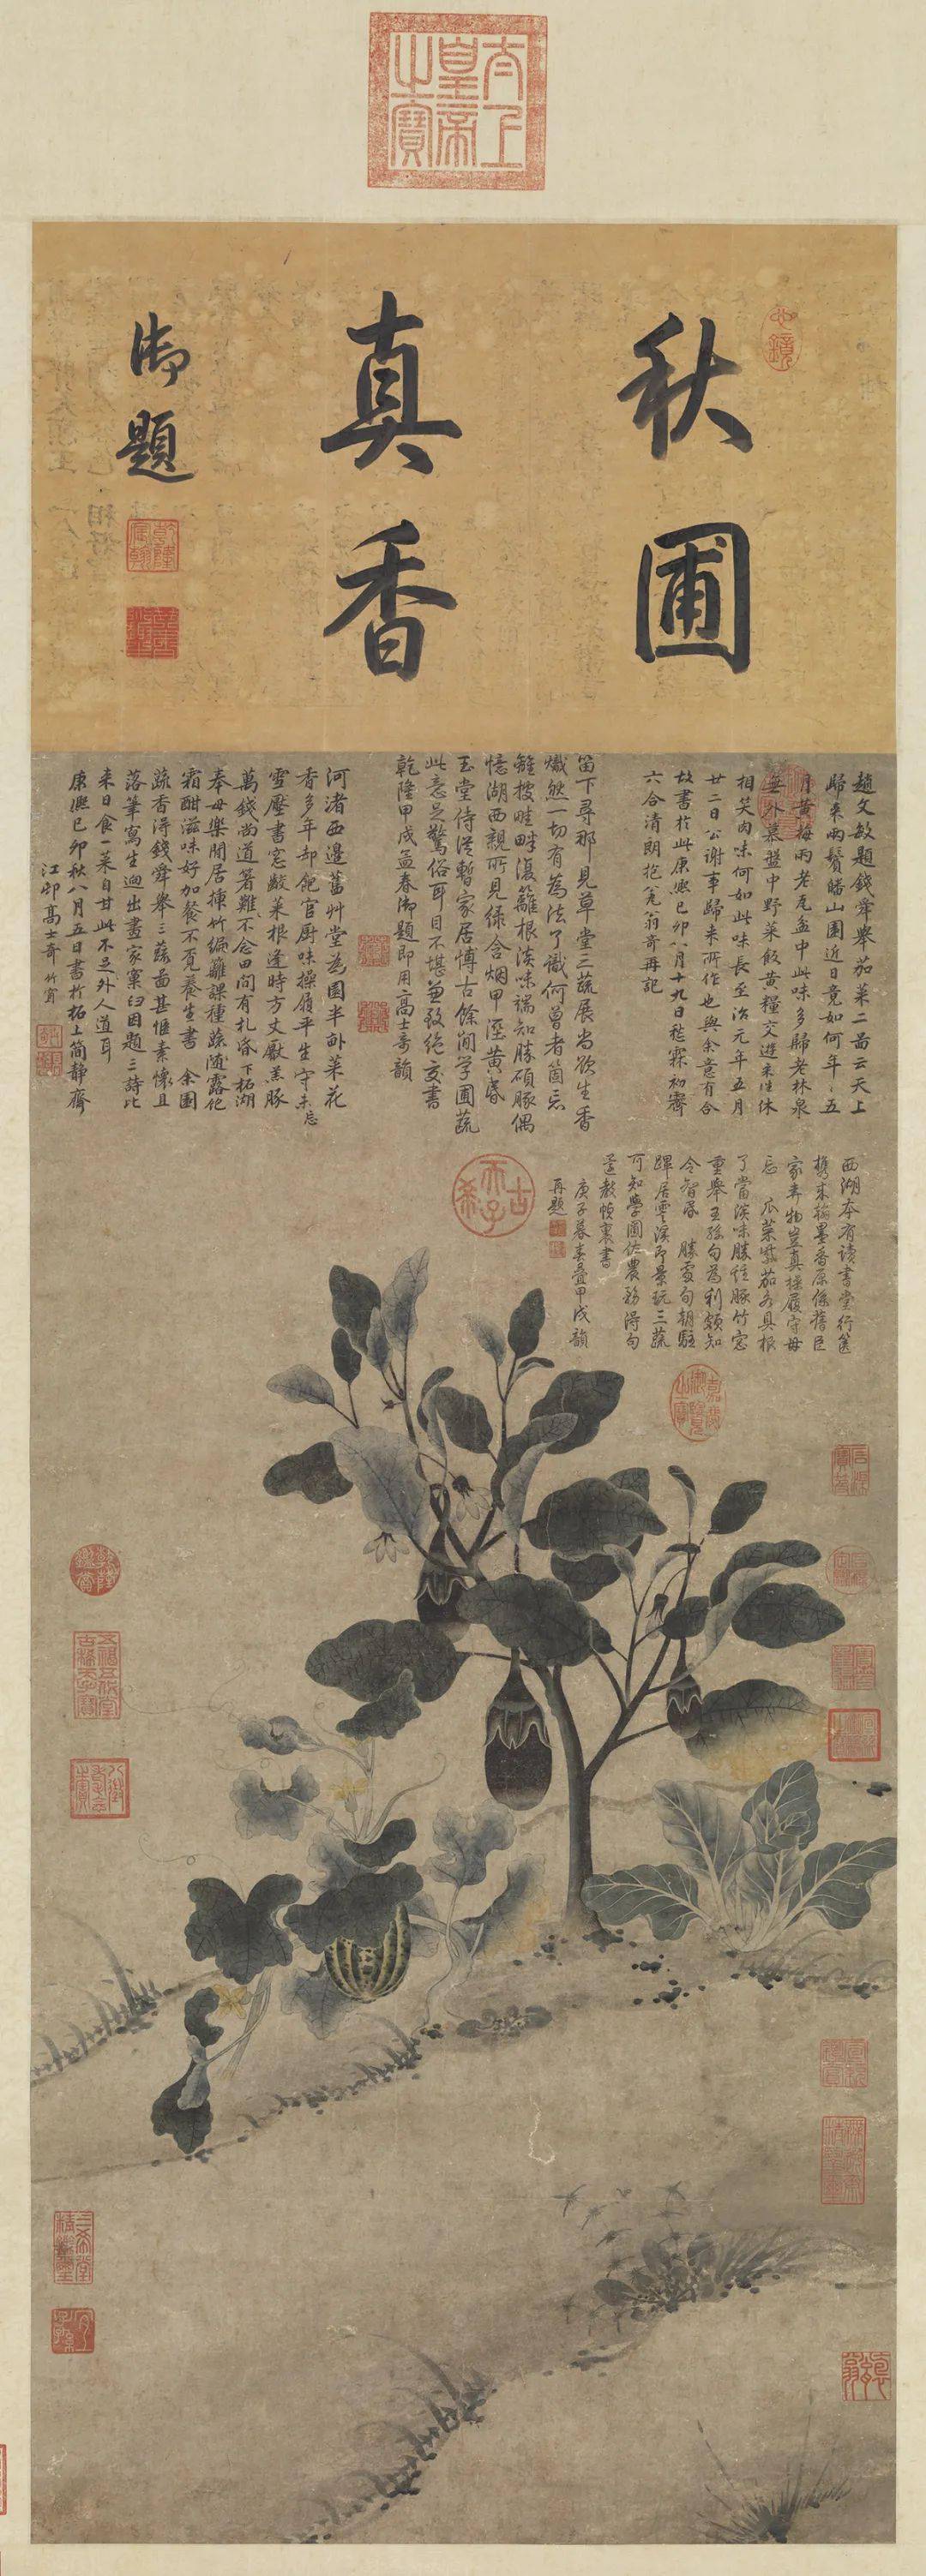 太上
皇帝
之寶
秋圃
真香
御題
乾隆宸翰
趙文敏題錢舜舉茄菜二圖云天上
歸來兩鬢皤山園近日竟如何年年五
月黄梅雨老瓦盆中此味多歸老林泉
無外慕盤中野菜飯黄糧交遊來往休
相笑肉味何如此味長至治元年五月
廿二日公謝事歸來所作也與余意有合
故書於此康熙己卯八月十九日愁霖初霽
六合清朗抱瓮翁奇再記
笛下尋那見草堂三蔬展卷欲生香
熾然一切有為法了識何曾者箇忘
雞棲畦畔復籬根淡味端知勝碩豚偶
憶湖西親所見緑含烟甲溼黄昏
玉堂侍從暫家居博古餘閒學圃蔬
此意足驚俗耳目不堪並致絶交書
乾隆甲戌孟春御題即用高士奇韻
河渚西邊舊艸堂為園半卧菜花
香多年却飽官厨味操履平生守未忘
雪壓書窓齩菜根逢時方丈厭羔豚
萬錢尚道箸難不念田間有札昏 下柘湖
奉母樂閒居插竹編籬課種蔬隨露飽
霜酣滋味好加餐不覓養生書 余園
蔬香得錢舜舉三蔬圖甚愜素懷且
落筆寫生迥出畫家窠臼因題三詩比
來日食一菜自甘此不足外人道耳
康熙己卯秋八月五日書於柘上簡靜齋
江邨高士奇 竹窗
西湖本有讀書堂行篋
携來翰墨香原係舊臣
家弆物豈真操履守毋
忘 瓜菜紫茄各具根
了當淡味勝蒸豚竹窓
重舉王孫句為利頗知
令智昏 勝處旬朝駐
蹕居雩溪即景玩三蔬
可知學圃佐農務得句
還教幀裏書
庚子暮春疊甲戌韻
再題
古稀天子
嘉慶御覽之寶
乾隆鑑賞
石渠寶笈
五福五代堂古稀天子寶
八徵耄念之寶
三希堂精鑑璽
宜子孫